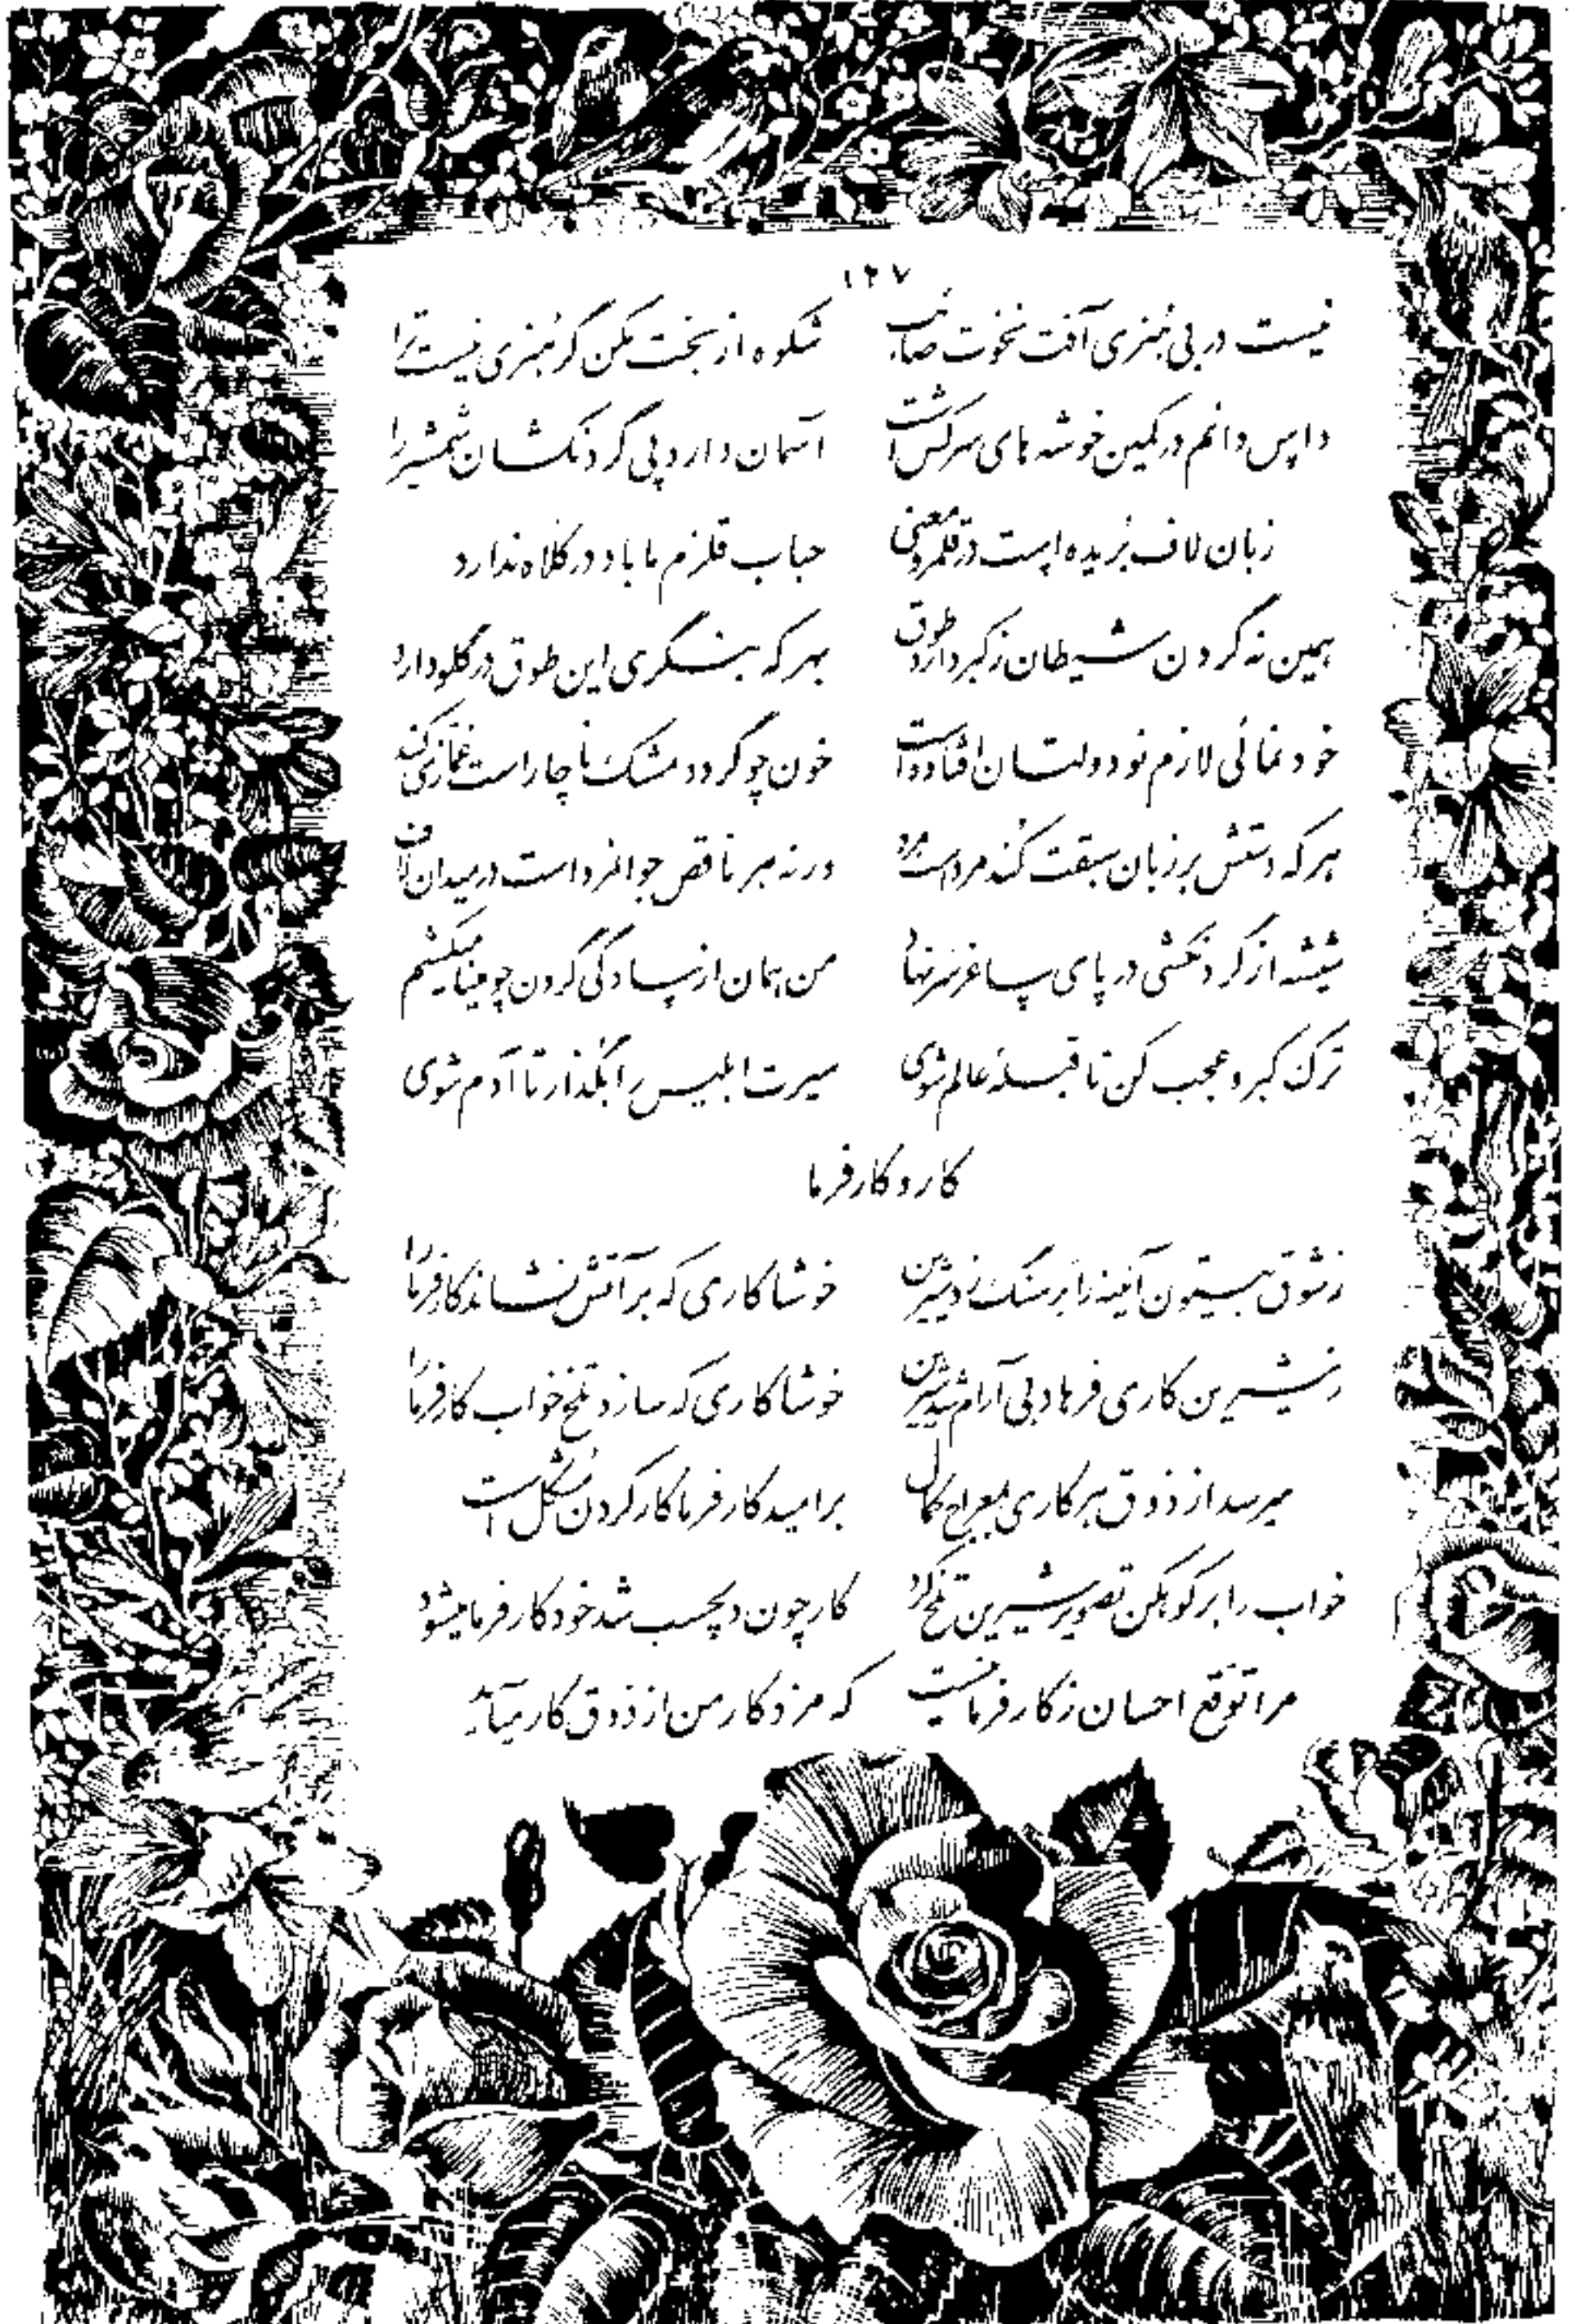 ۱۲۷
نیست در بی هنری آفت نخوت صائب شکوه از بخت مکن گر هنری نیست ترا
داس دانم در کمین خوشه های سرکش است آسمان دارد پی گردنکشان شمشیر را
زبان لاف بریده است در قلمرو معنی حباب قلزم ما باد در کلاه ندارد
همین نه گردن شیطان ز کبر دارد طوق بهر که بنگری این طوق در گلو دارد
خود نمائی لازم نو دولتان افتاده است خون چو گردد مشک ناچار است غمازی کند
هر که دستش بر زبان سبقت کند مردست مرد ورنه هر ناقص جوانمرد است در میدان لاف
شیشه از گردنکشی در پای ساغر سر نهاد من همان از سادگی گردن چو مینا میکشم
ترک کبر و عجب کن تا قبلهٔ عالم شوی سیرت ابلیس را بگذار تا آدم شوی
کار و کارفرما
ز شوق بیستون آئینه را بر سنگ زد شیرین خوشا کاری که بر آتش نشاند کارفرما را
ز شیرین کاری فرهاد بی آرام شد شیرین خوشا کاری که سازد تلخ خواب کارفرما را
میرسد از ذوق هر کاری بمعراج کمال بر امید کارفرما کار کردن مشکل است
خواب را بر کوهکن تصویر شیرین تلخ کرد کار چون دلچسب شد خود کارفرما میشود
مرا توقع احسان ز کارفرما نیست که مزد کار من از ذوق کار میآید